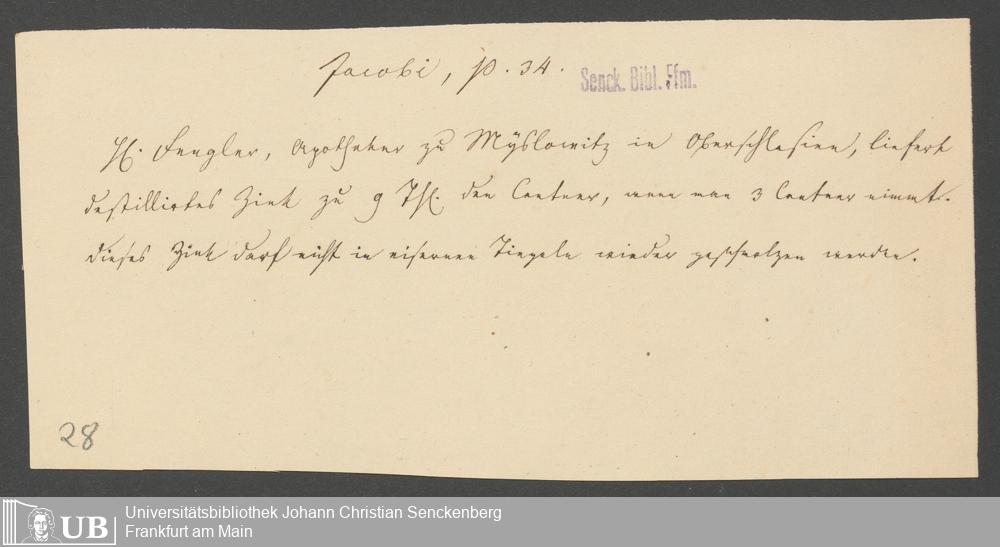 Jacobi, p. 34.
Senck. Bibl. Ffm.
H. Fengler, Apotheker zu Mÿslowitz in Oberschlesien, liefert
destillirtes Zink zu 9 Thl. den Centner, wenn man 3 Centner nimmt.
dieses Zink darf nicht in eisernen Tiegeln wieder geschmolzen werden.
28
UB
Universitätsbibliothek Johann Christian Senckenberg
Frankfurt am Main